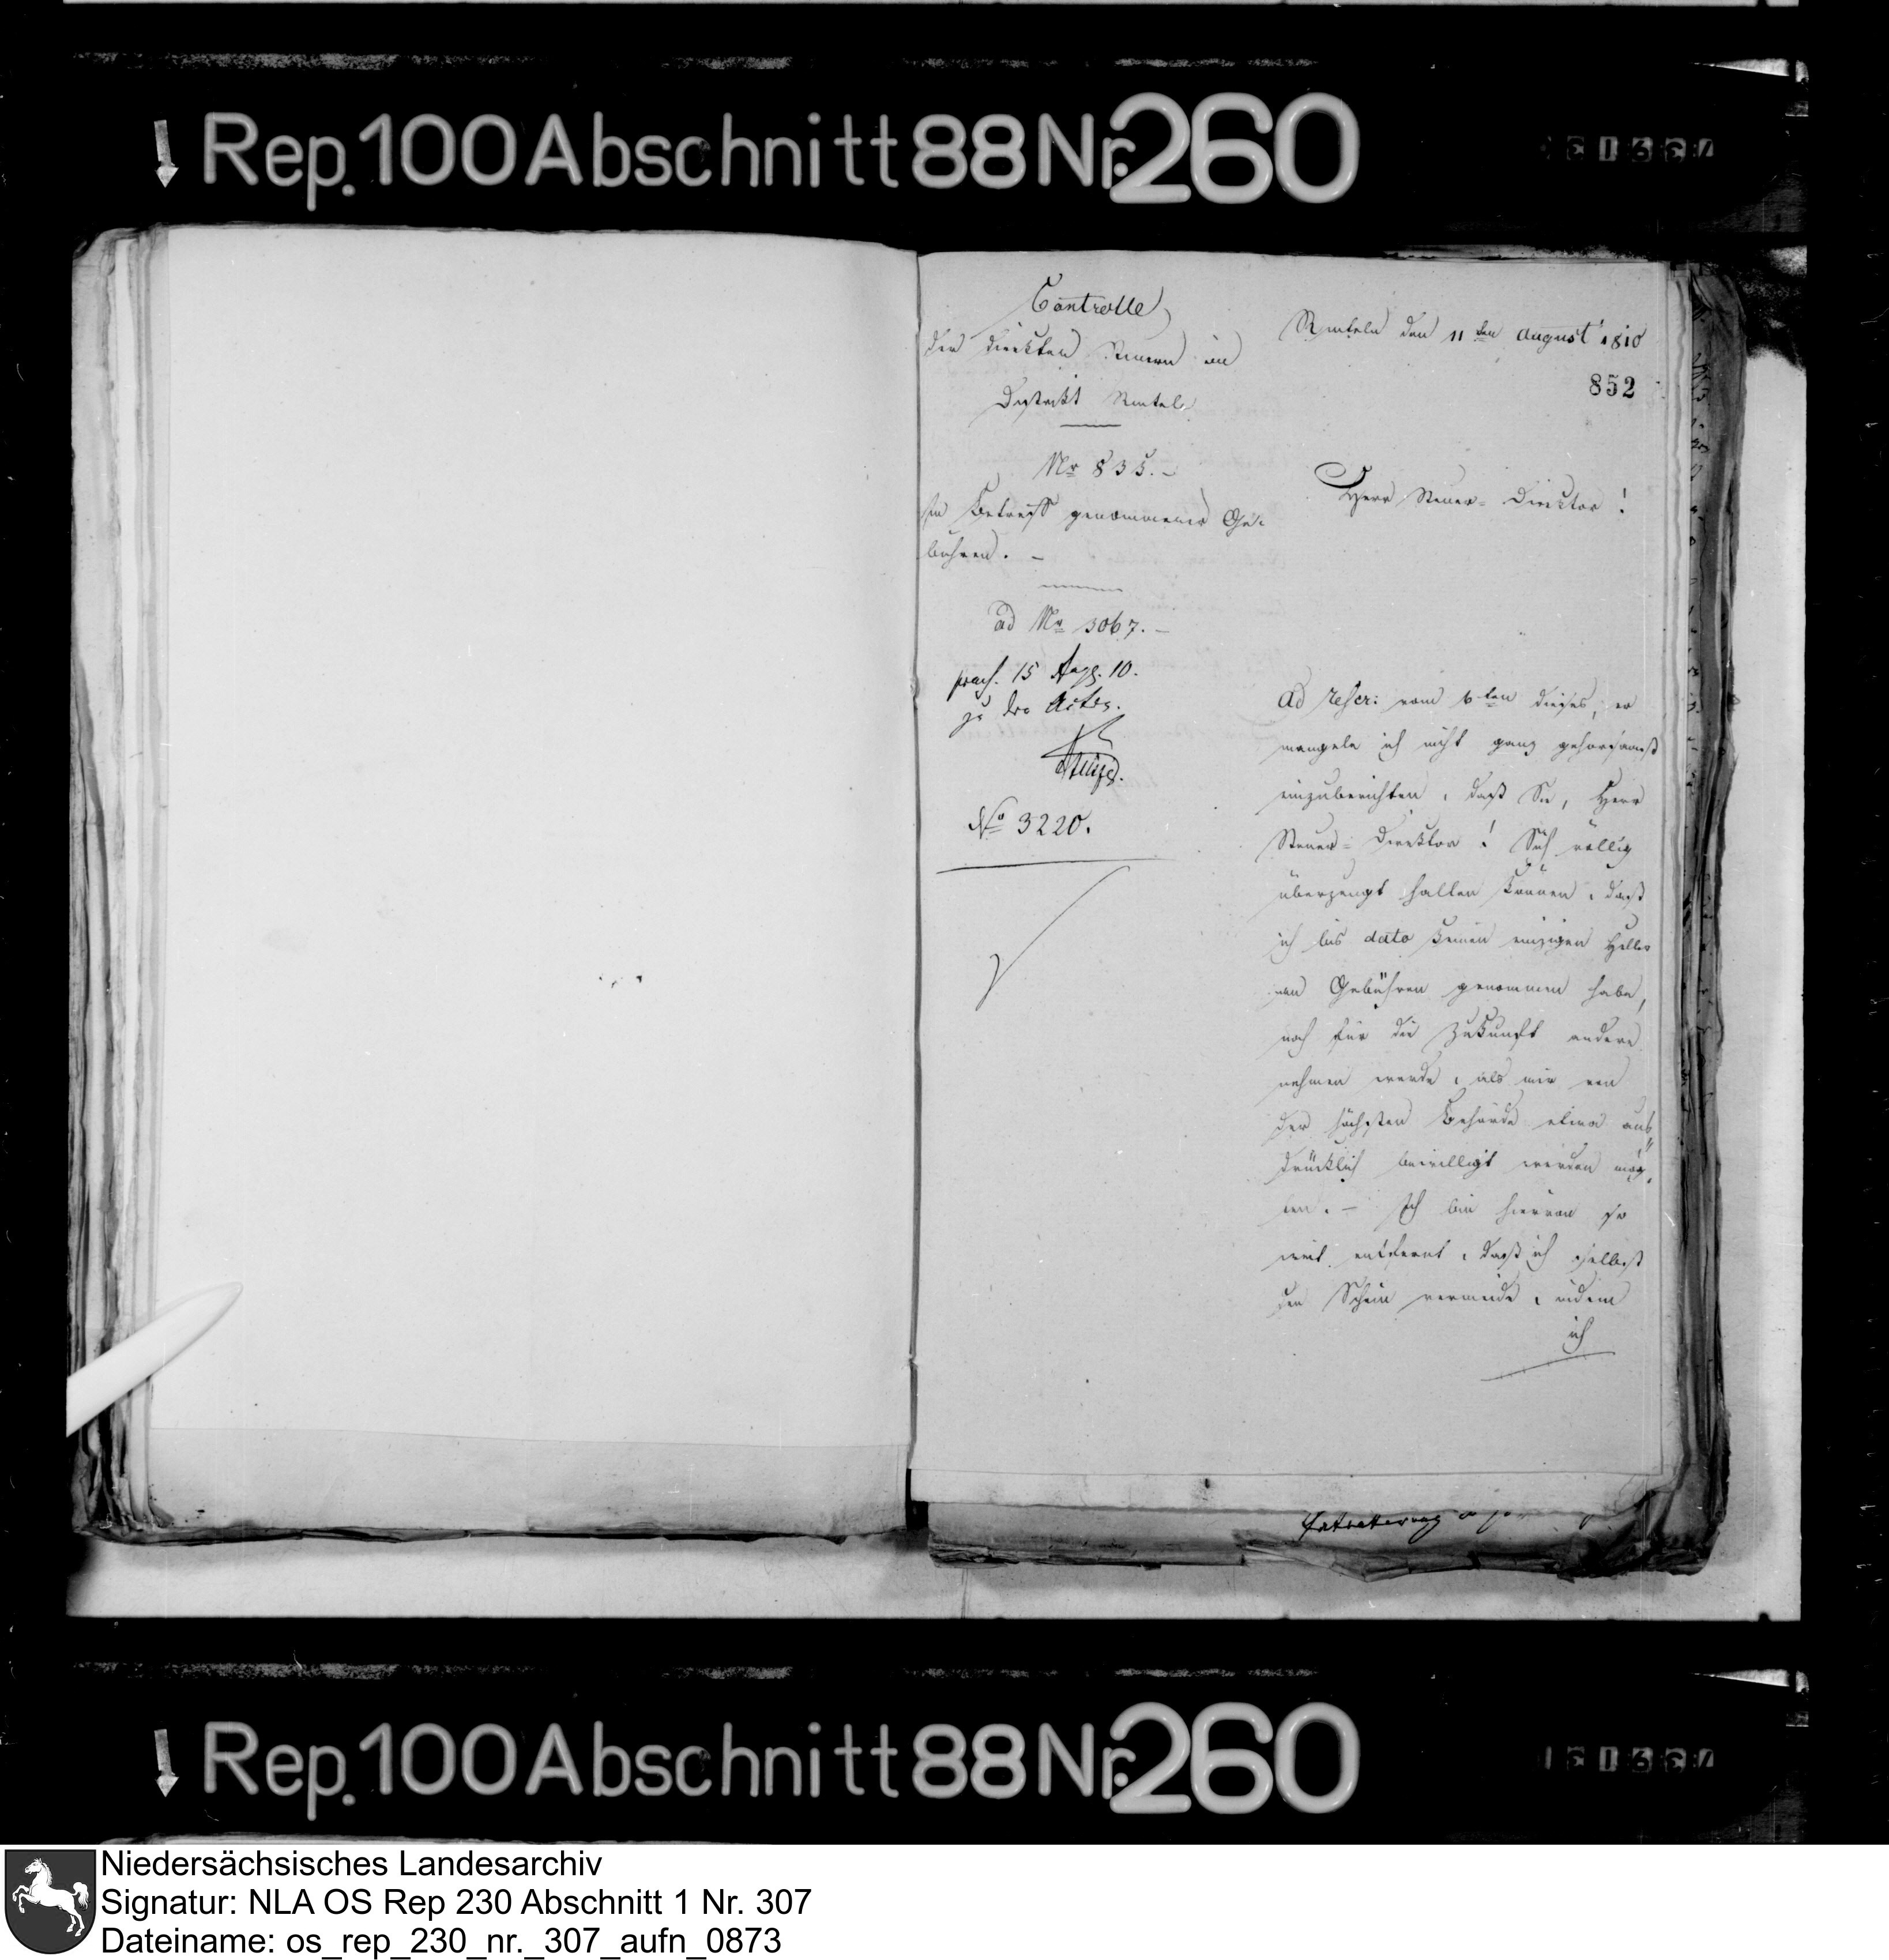 Rep. 100 Abschnitt 88 Nr. 260
Controlle
der direkten Steuern im
Distrikt Rinteln
Nr 835.
In Betreff genommener Ge-
bühren. –
ad Nr 3067. –
praes. 15 Aug. 10.
zu den Acten.
No 3220.
Rinteln den 11ten August 1810
852
Herr Steuer-Direktor!
Ad rescr: vom 6ten dieses, er
mangele ich nicht ganz gehorsamst
einzuberichten, daß Sie, Herr
Steuer-Direktor! Sich völlig
überzeugt halten können, daß
ich bis dato keinen einzigen Heller
an Gebühren genommen habe,
noch für die Zukunft andere
nehmen werde, als mir von
der höchsten Behörde etwa aus
drücklich bewilligt werden mög
ten. – Ich bin hievon so
weit entfernt, daß ich selbst
den Schein vermeide, indem
ich
Rep. 100 Abschnitt 88 Nr. 260
Niedersächsisches Landesarchiv
Signatur: NLA OS Rep 230 Abschnitt 1 Nr. 307
Dateiname: os_rep_230_nr._307_aufn_0873